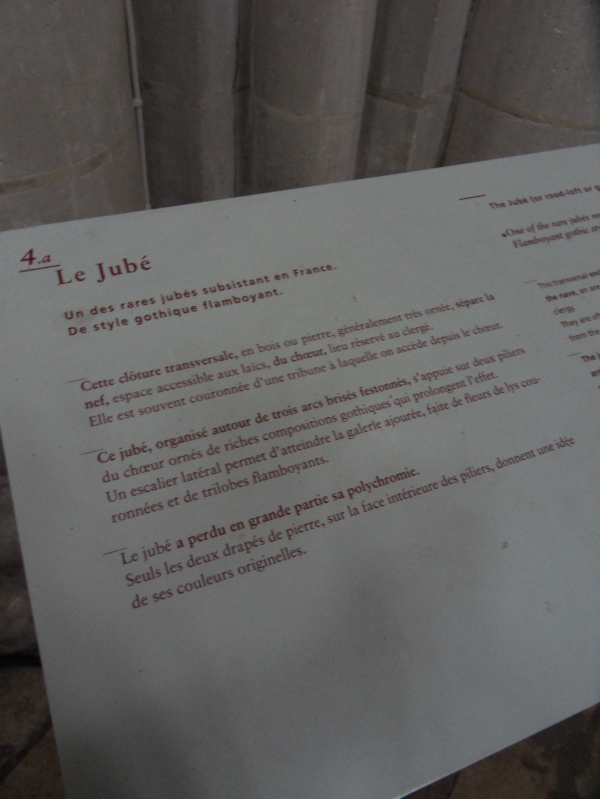 4.a
Le Jubé
Un des rares jubés subsistant en France.
De style gothique flamboyant.
Cette clôture transversale, en bois ou pierre, généralement très ornée, sépare la
nef, espace accessible aux laïcs, du chœur, lieu réservé au clergé.
Elle est souvent couronnée d'une tribune à laquelle on accède depuis le chœur.
Ce jubé, organisé autour de trois arcs brisés festonnés, s'appuie sur deux piliers
du chœur ornés de riches compositions gothiques qui prolongent l'effet.
Un escalier latéral permet d'atteindre la galerie ajourée, faite de fleurs de lys cou-
ronnées et de trilobes flamboyants.
Le jubé a perdu en grande partie sa polychromie.
Seuls les deux drapés de pierre, sur la face intérieure des piliers, donnent une idée
de ses couleurs originelles.
The Jubé (or rood-loft or
One of the rare jubés
Flamboyant gothic
This transversal
the nave, an
clergy.
They are
from the
The